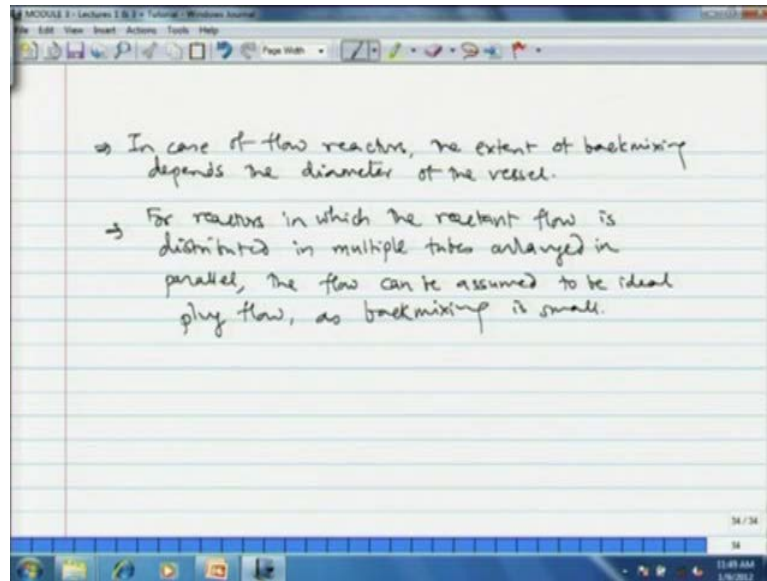 MODULE 3 - Lectures 1 & 3 + Tutorial - Windows Journal
File Edit View Insert Actions Tools Help
Page Width
⇒ In case of flow reactors, the extent of backmixing
depends the diameter of the vessel.
→ For reactors in which the reactant flow is
distributed in multiple tubes arranged in
parallel, the flow can be assumed to be ideal
plug flow, as backmixing is small.
34 / 34
34
11:49 AM
1/6/2012